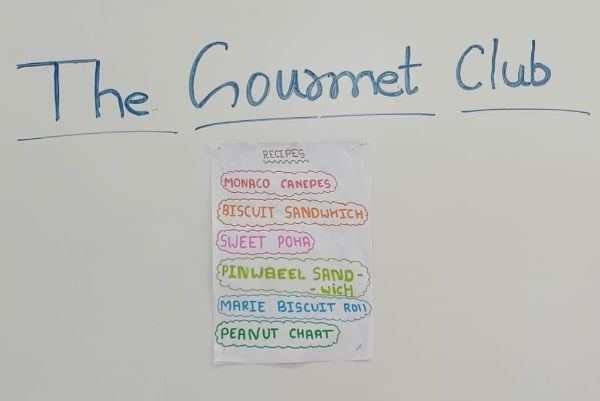 The Gourmet Club
RECIPES
MONACO CANEPES
BISCUIT SANDWHICH
SWEET POHA
PINWHEEL SAND-
-WICH
MARIE BISCUIT ROll
PEANUT CHAAT